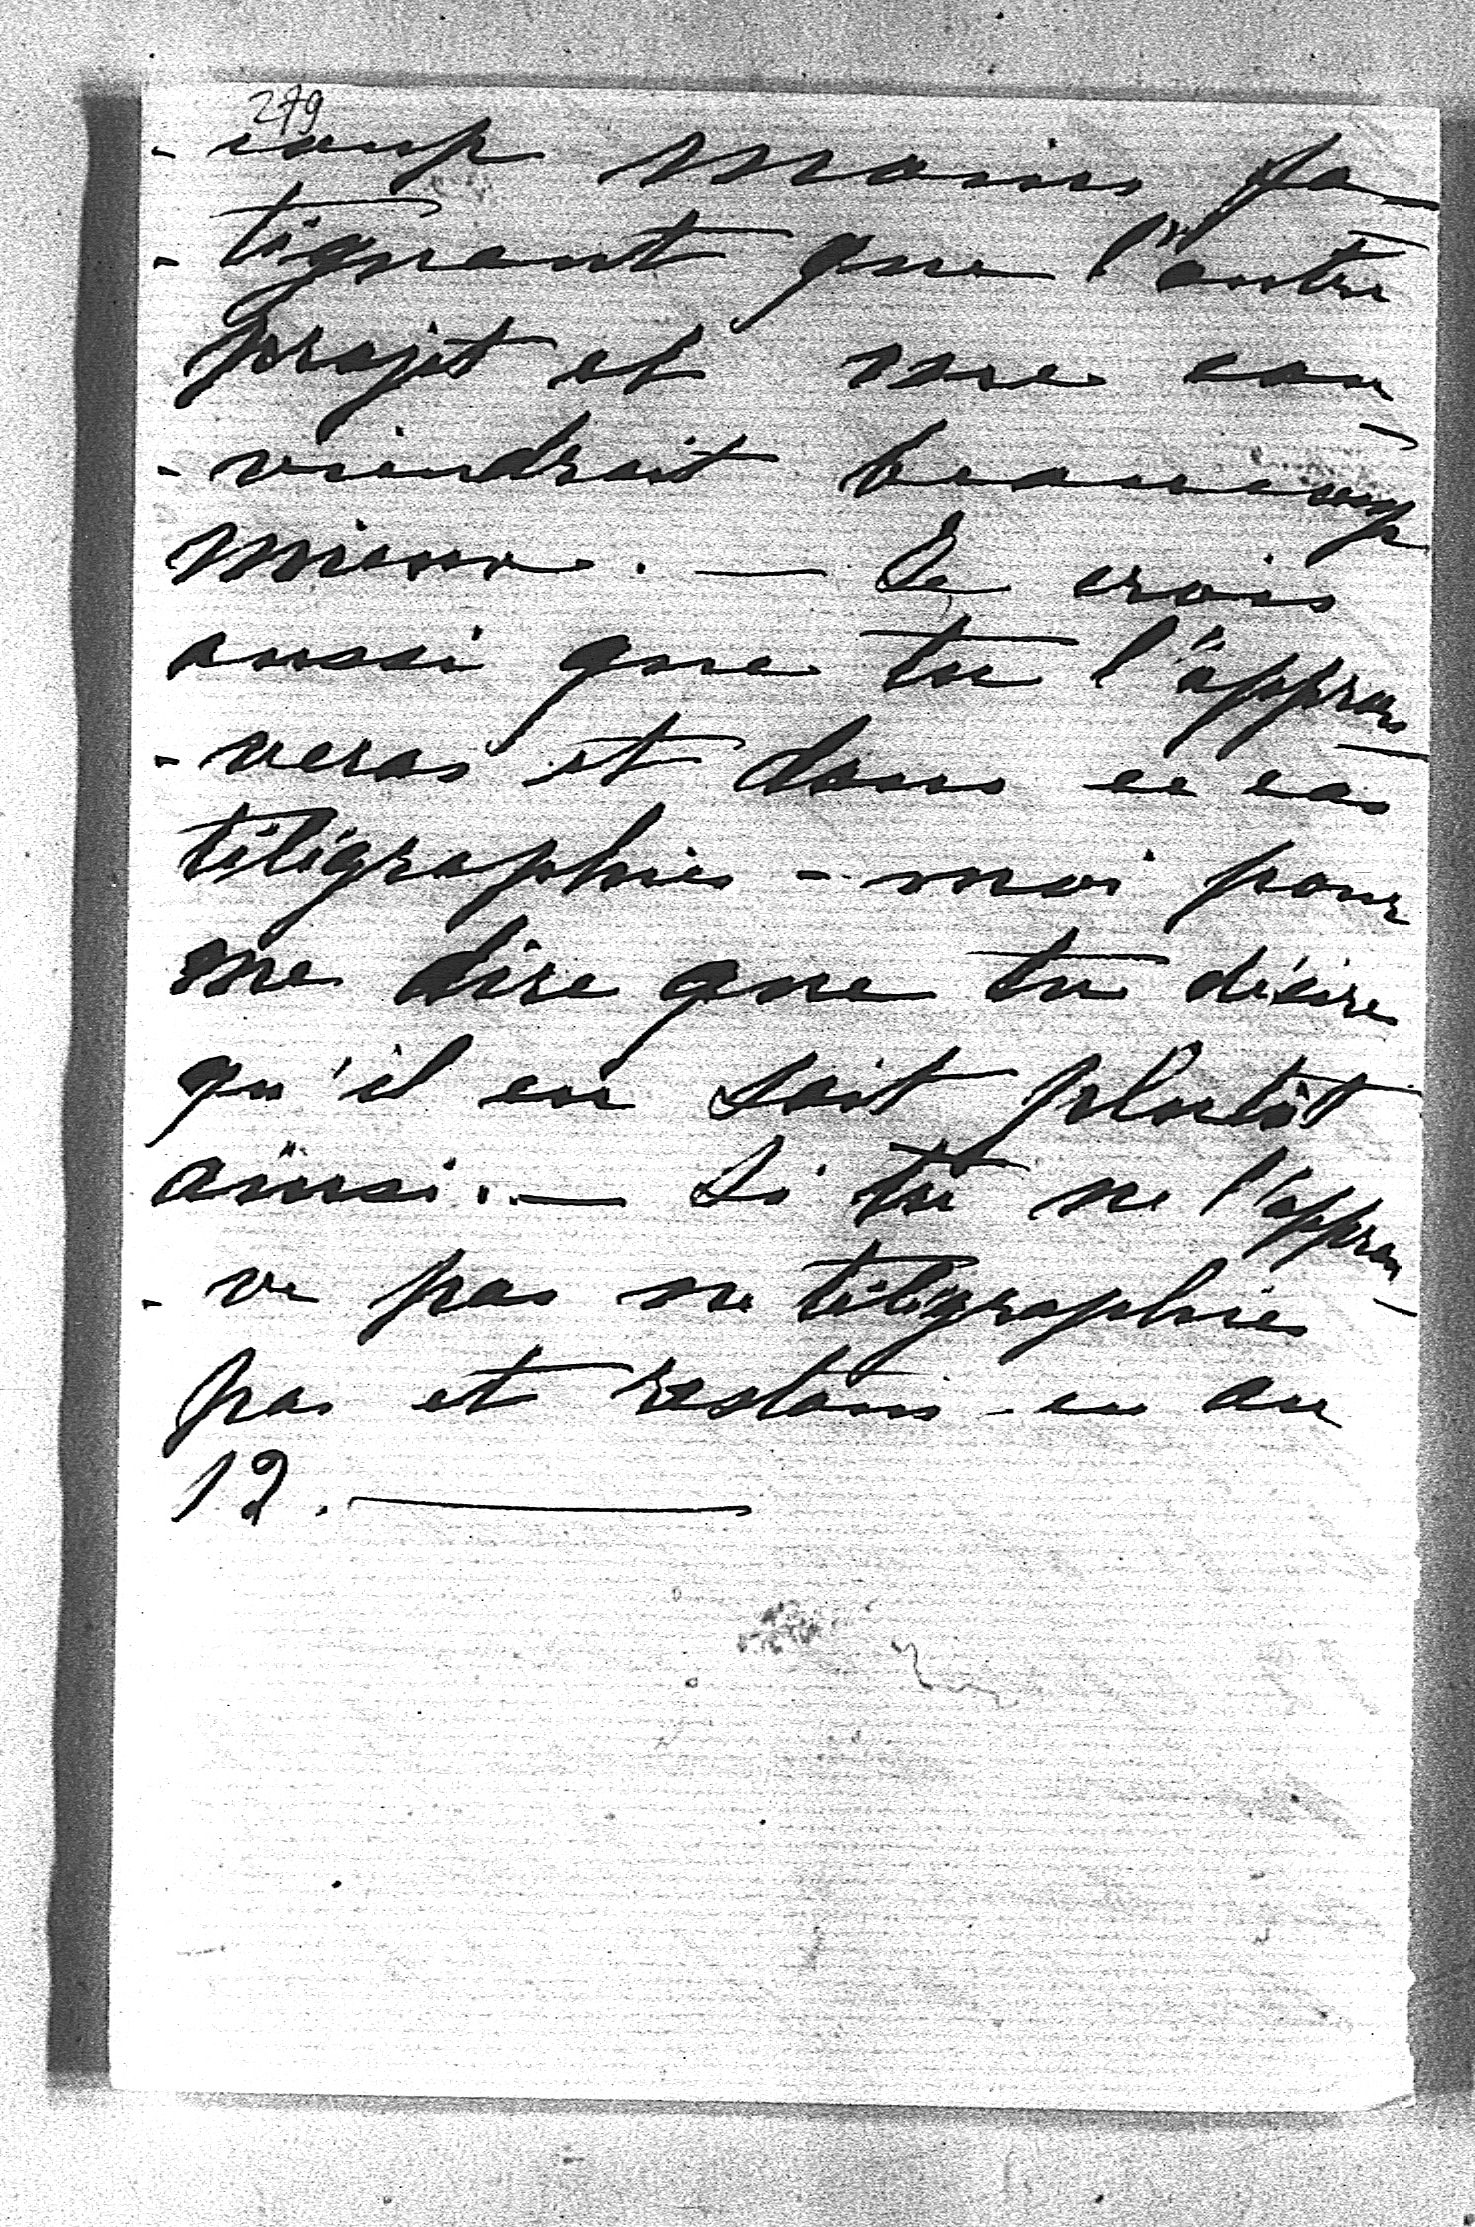 279
- coup moins fa-
- tignant que l'autre
projet et me con
- viendrait beaucoup
mieux. — Je crois
aussi que tu l'approu-
- veras et dans ce cas
télégraphies - moi pour
me dire que tu désire
qu'il en soit plutôt
ainsi. — Si tu ne l'approu-
- ve pas ne télégraphies
pas et restons - en au
12. —